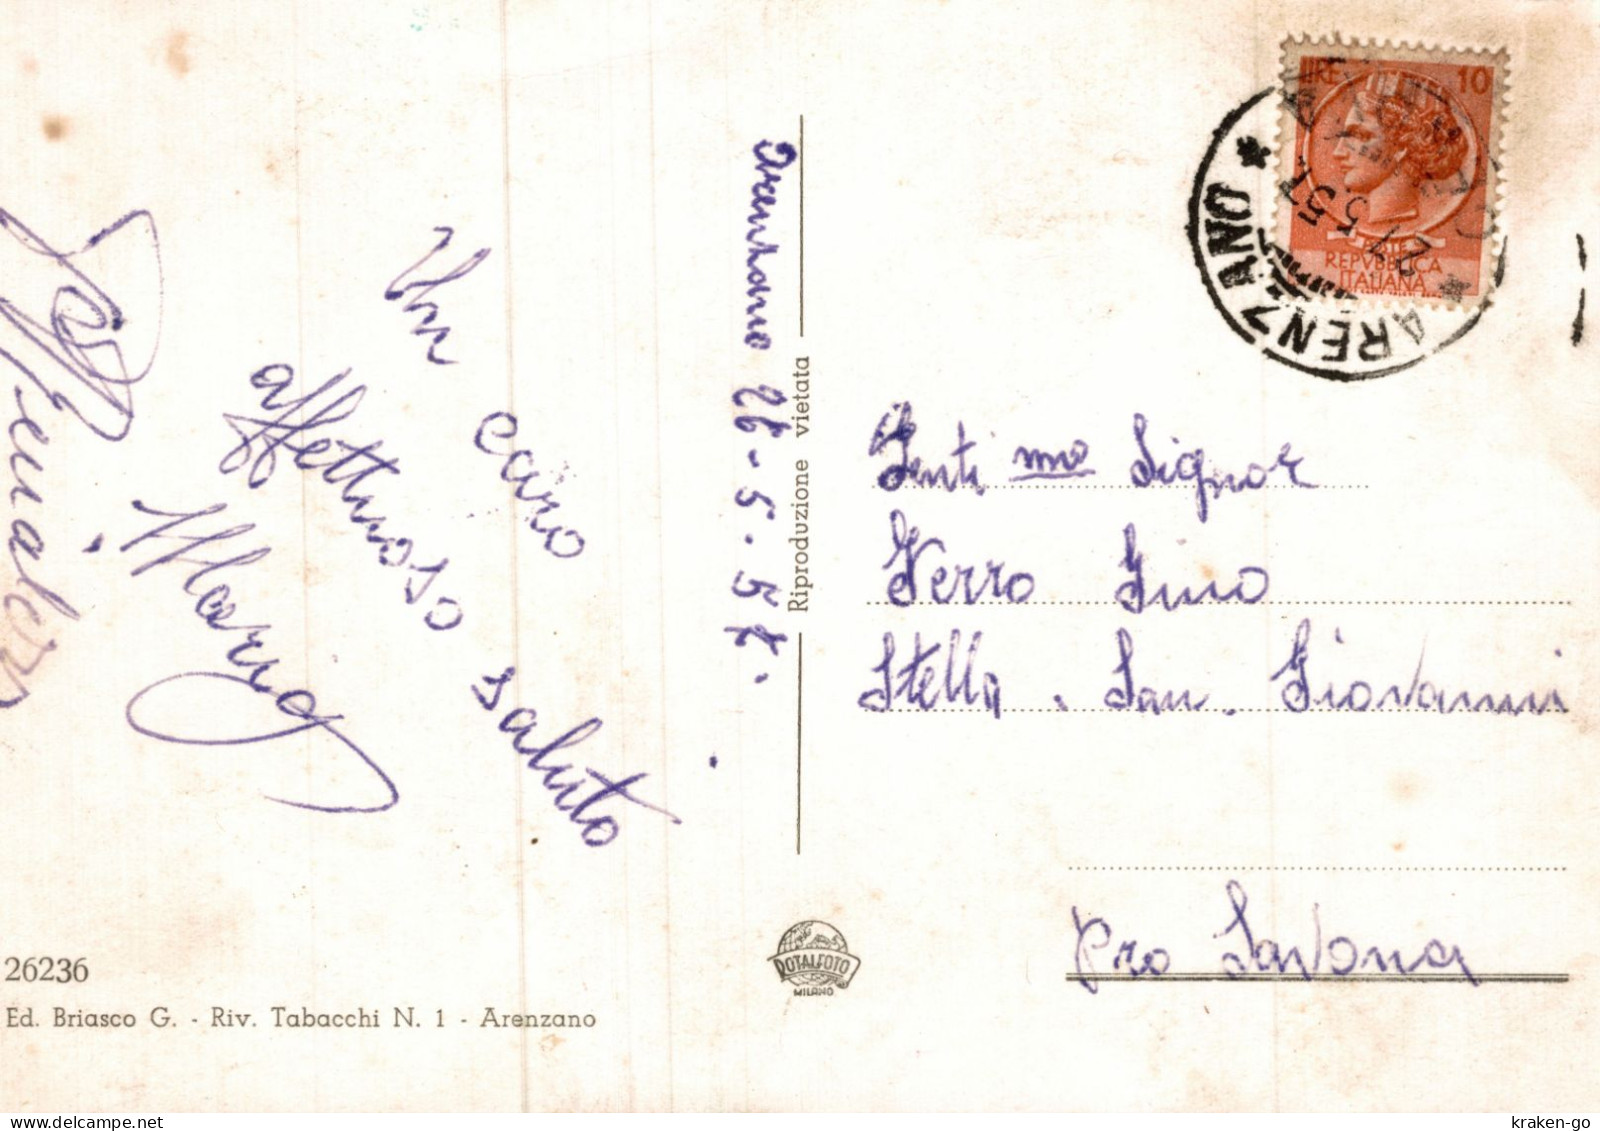 Arenzano 26-5-57.
Un caro
affettuoso saluto
Maria
Riproduzione vietata
LIRE 10
POSTE
REPVBBLICA
ITALIANA
ARENZANO
27 5 57
Genti mo Signor
Ferro Gino
Stella . San . Giovanni
Pro Savona
ROTALFOTO
MILANO
26236
Ed. Briasco G. - Riv. Tabacchi N. 1 - Arenzano
kraken-go